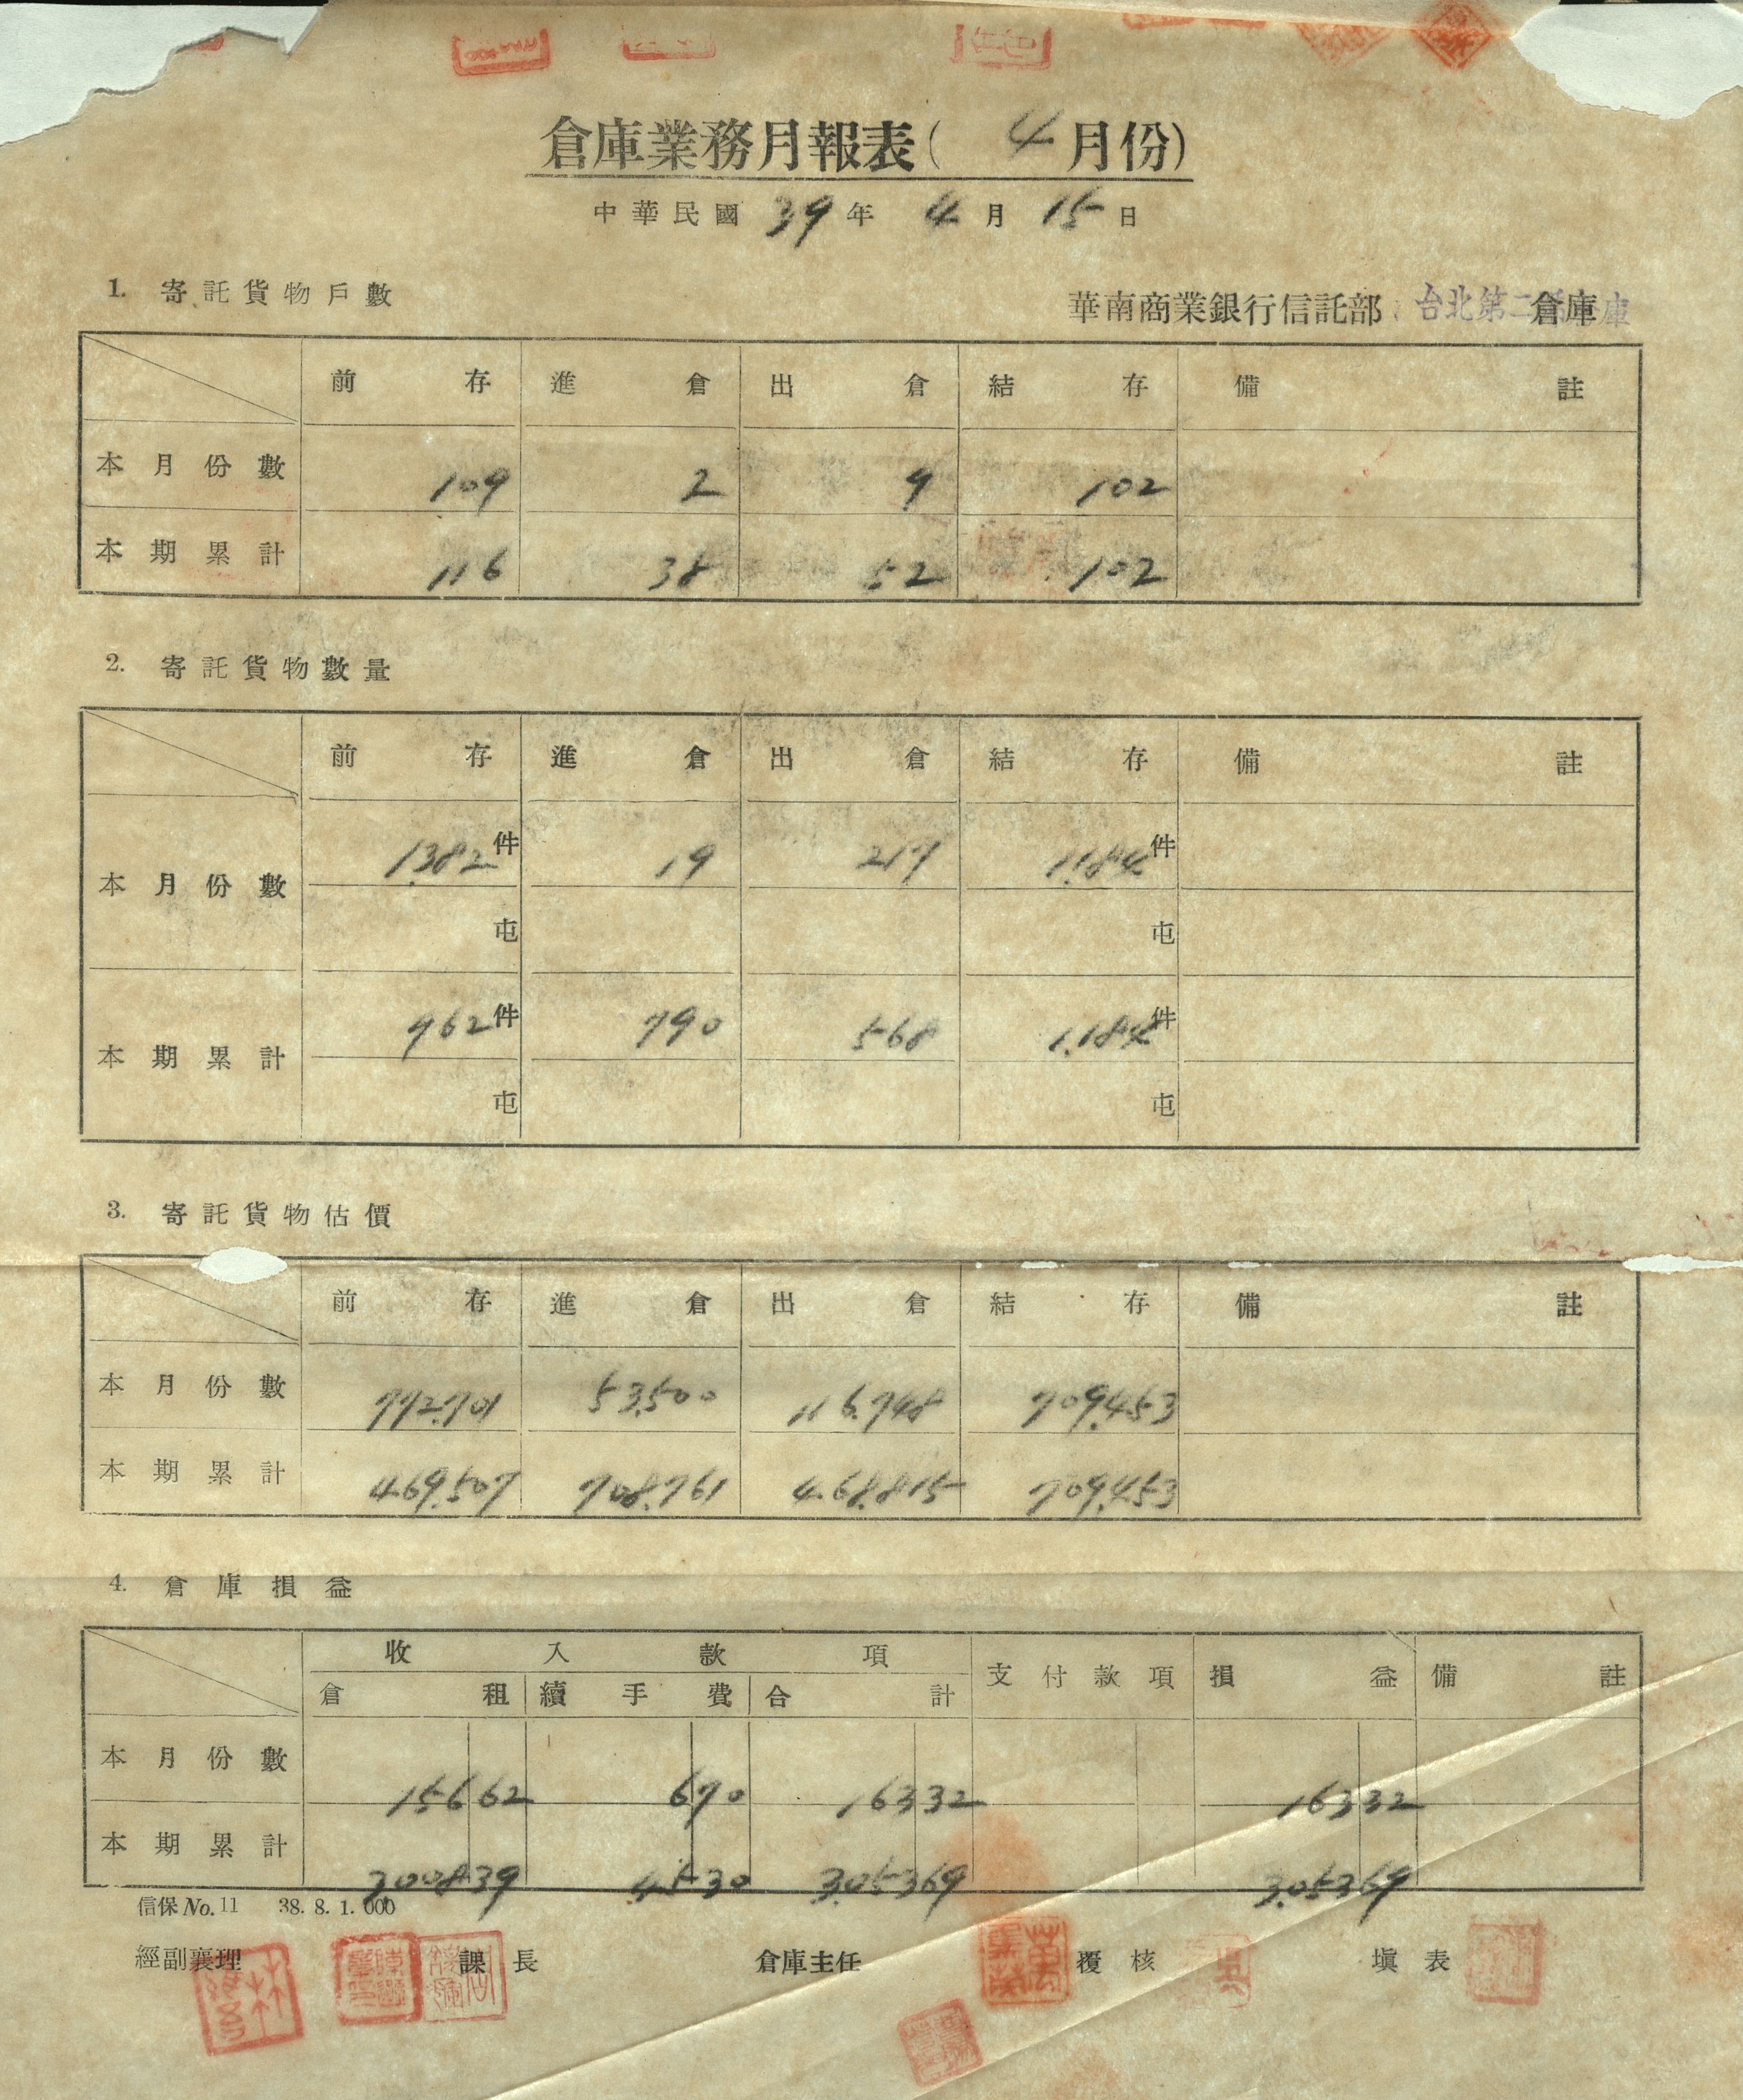 倉庫業務月報表( 4月份)
中華民國 39 年 4 月 15 日
1. 寄託貨物戶數
華南商業銀行信託部 台北第二 倉庫
前存 進倉 出倉 結存 備註
本月份數 109 2 9 102
本期累計 116 38 52 102
2. 寄託貨物數量
前存 進倉 出倉 結存 備註
本月份數 1.382件 19 217 1.184件
屯 屯
本期累計 962件 790 568 1.184件
屯 屯
3. 寄託貨物估價
前存 進倉 出倉 結存 備註
本月份數 772.701 53.500 116.748 709.453
本期累計 469.507 708.761 468.815 709.453
4. 倉庫損益
收入款項 支付款項 損益 備註
倉租 續手費 合計
本月份數 15662 670 16332 16332
本期累計 300839 4530 305369 305369
信保 No. 11 38. 8. 1. 000
經副襄理 課長 倉庫主任 覆核 塡表